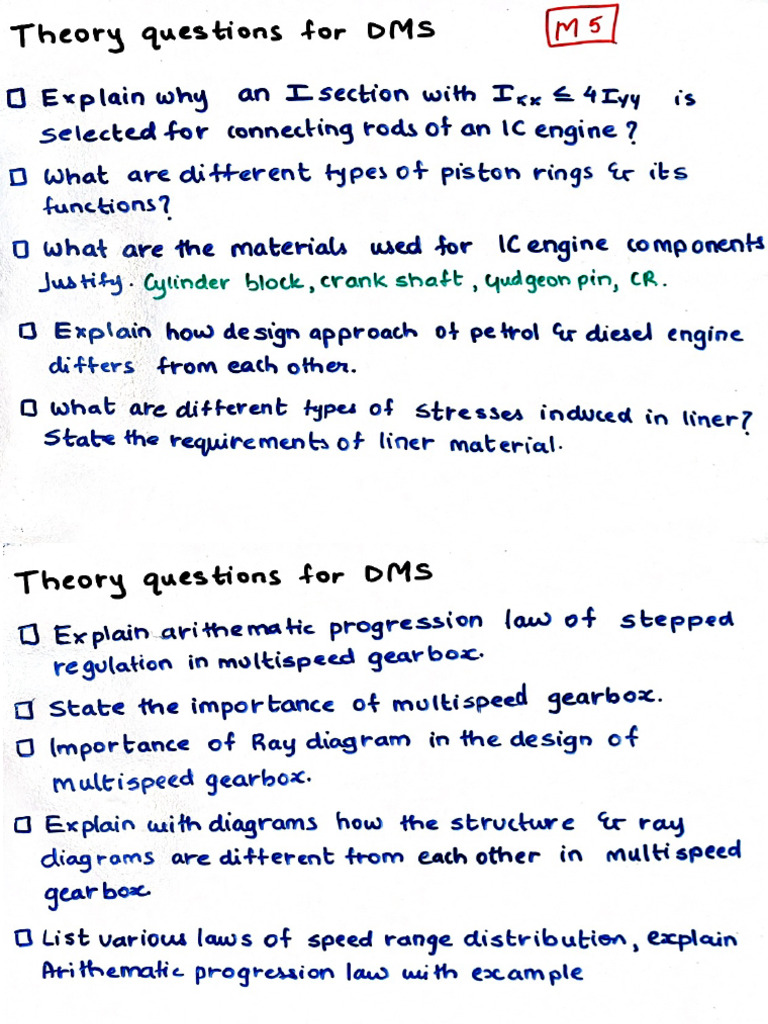 Theory questions for DMS
M 5
Explain why an I section with Ixx ≤ 4Iyy is
selected for connecting rods of an IC engine?
What are different types of piston rings & its
functions?
What are the materials used for IC engine components
Justify. Cylinder block, crank shaft, Gudgeon pin, CR.
Explain how design approach of petrol & diesel engine
differs from each other.
What are different types of stresses induced in liner?
State the requirements of liner material.
Theory questions for DMS
Explain arithematic progression law of stepped
regulation in multispeed gearbox.
State the importance of multispeed gearbox.
Importance of Ray diagram in the design of
multispeed gearbox.
Explain with diagrams how the structure & ray
diagrams are different from each other in multispeed
gearbox.
List various laws of speed range distribution, explain
Arithematic progression law with example